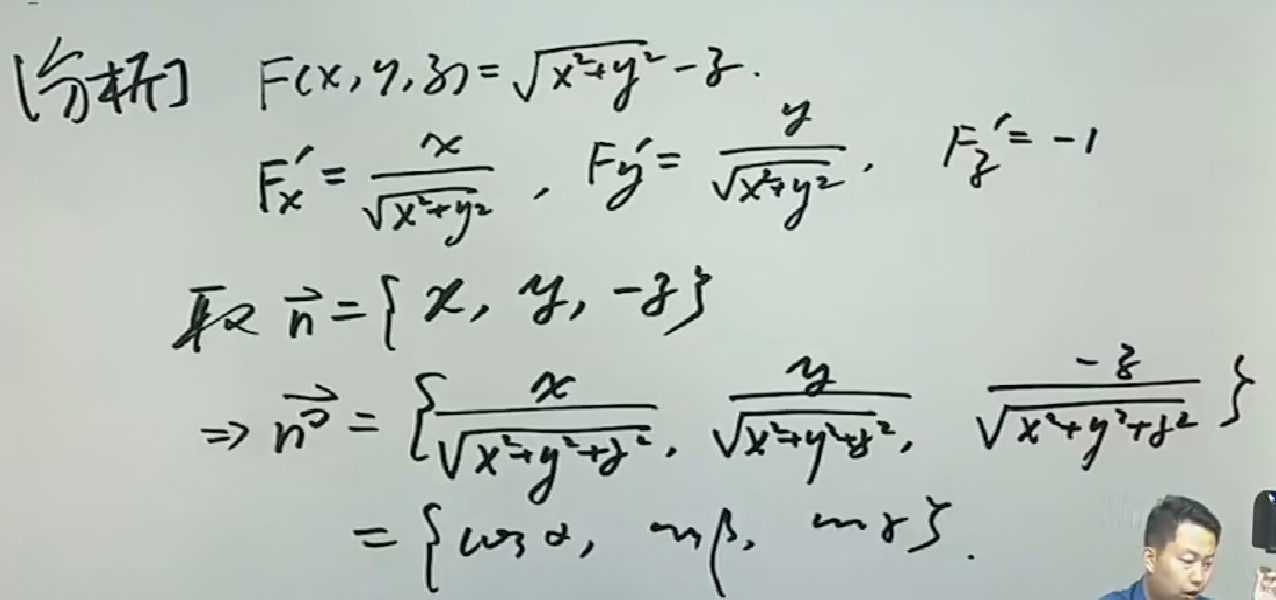 [分析] F(x,y,z)=√(x²+y²)-z.
F'x=x/√(x²+y²), F'y=y/√(x²+y²), F'z=-1
取 n⃗={x, y, -z}
⇒ n⃗°={x/√(x²+y²+z²), y/√(x²+y²+z²), -z/√(x²+y²+z²)}
={cosα, cosβ, cosγ}.